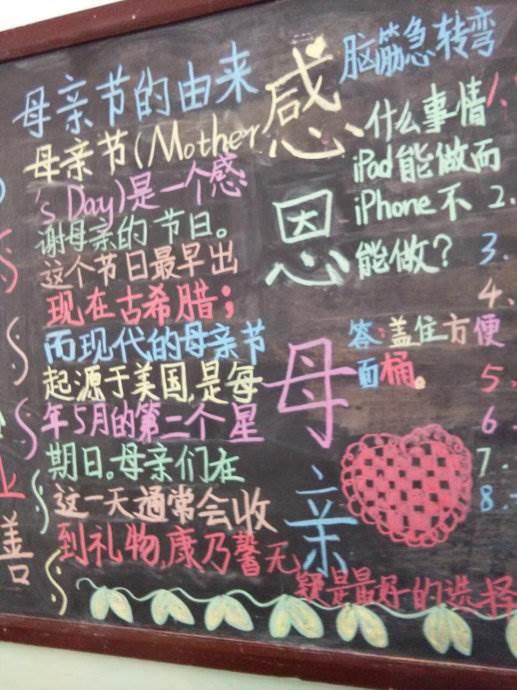 母亲节的由来
母亲节(Mother
's Day)是一个感
谢母亲的节日。
这个节日最早出
现在古希腊；
而现代的母亲节
起源于美国,是每
年5月的第二个星
期日。母亲们在
这一天通常会收
到礼物,康乃馨无
疑是最好的选择
感
恩
母
亲
脑筋急转弯
什么事情
iPad能做而
iPhone不
能做？
答:盖住方便
面桶。
1.
2.
3.
4.
5.
6.
7.
8.
善